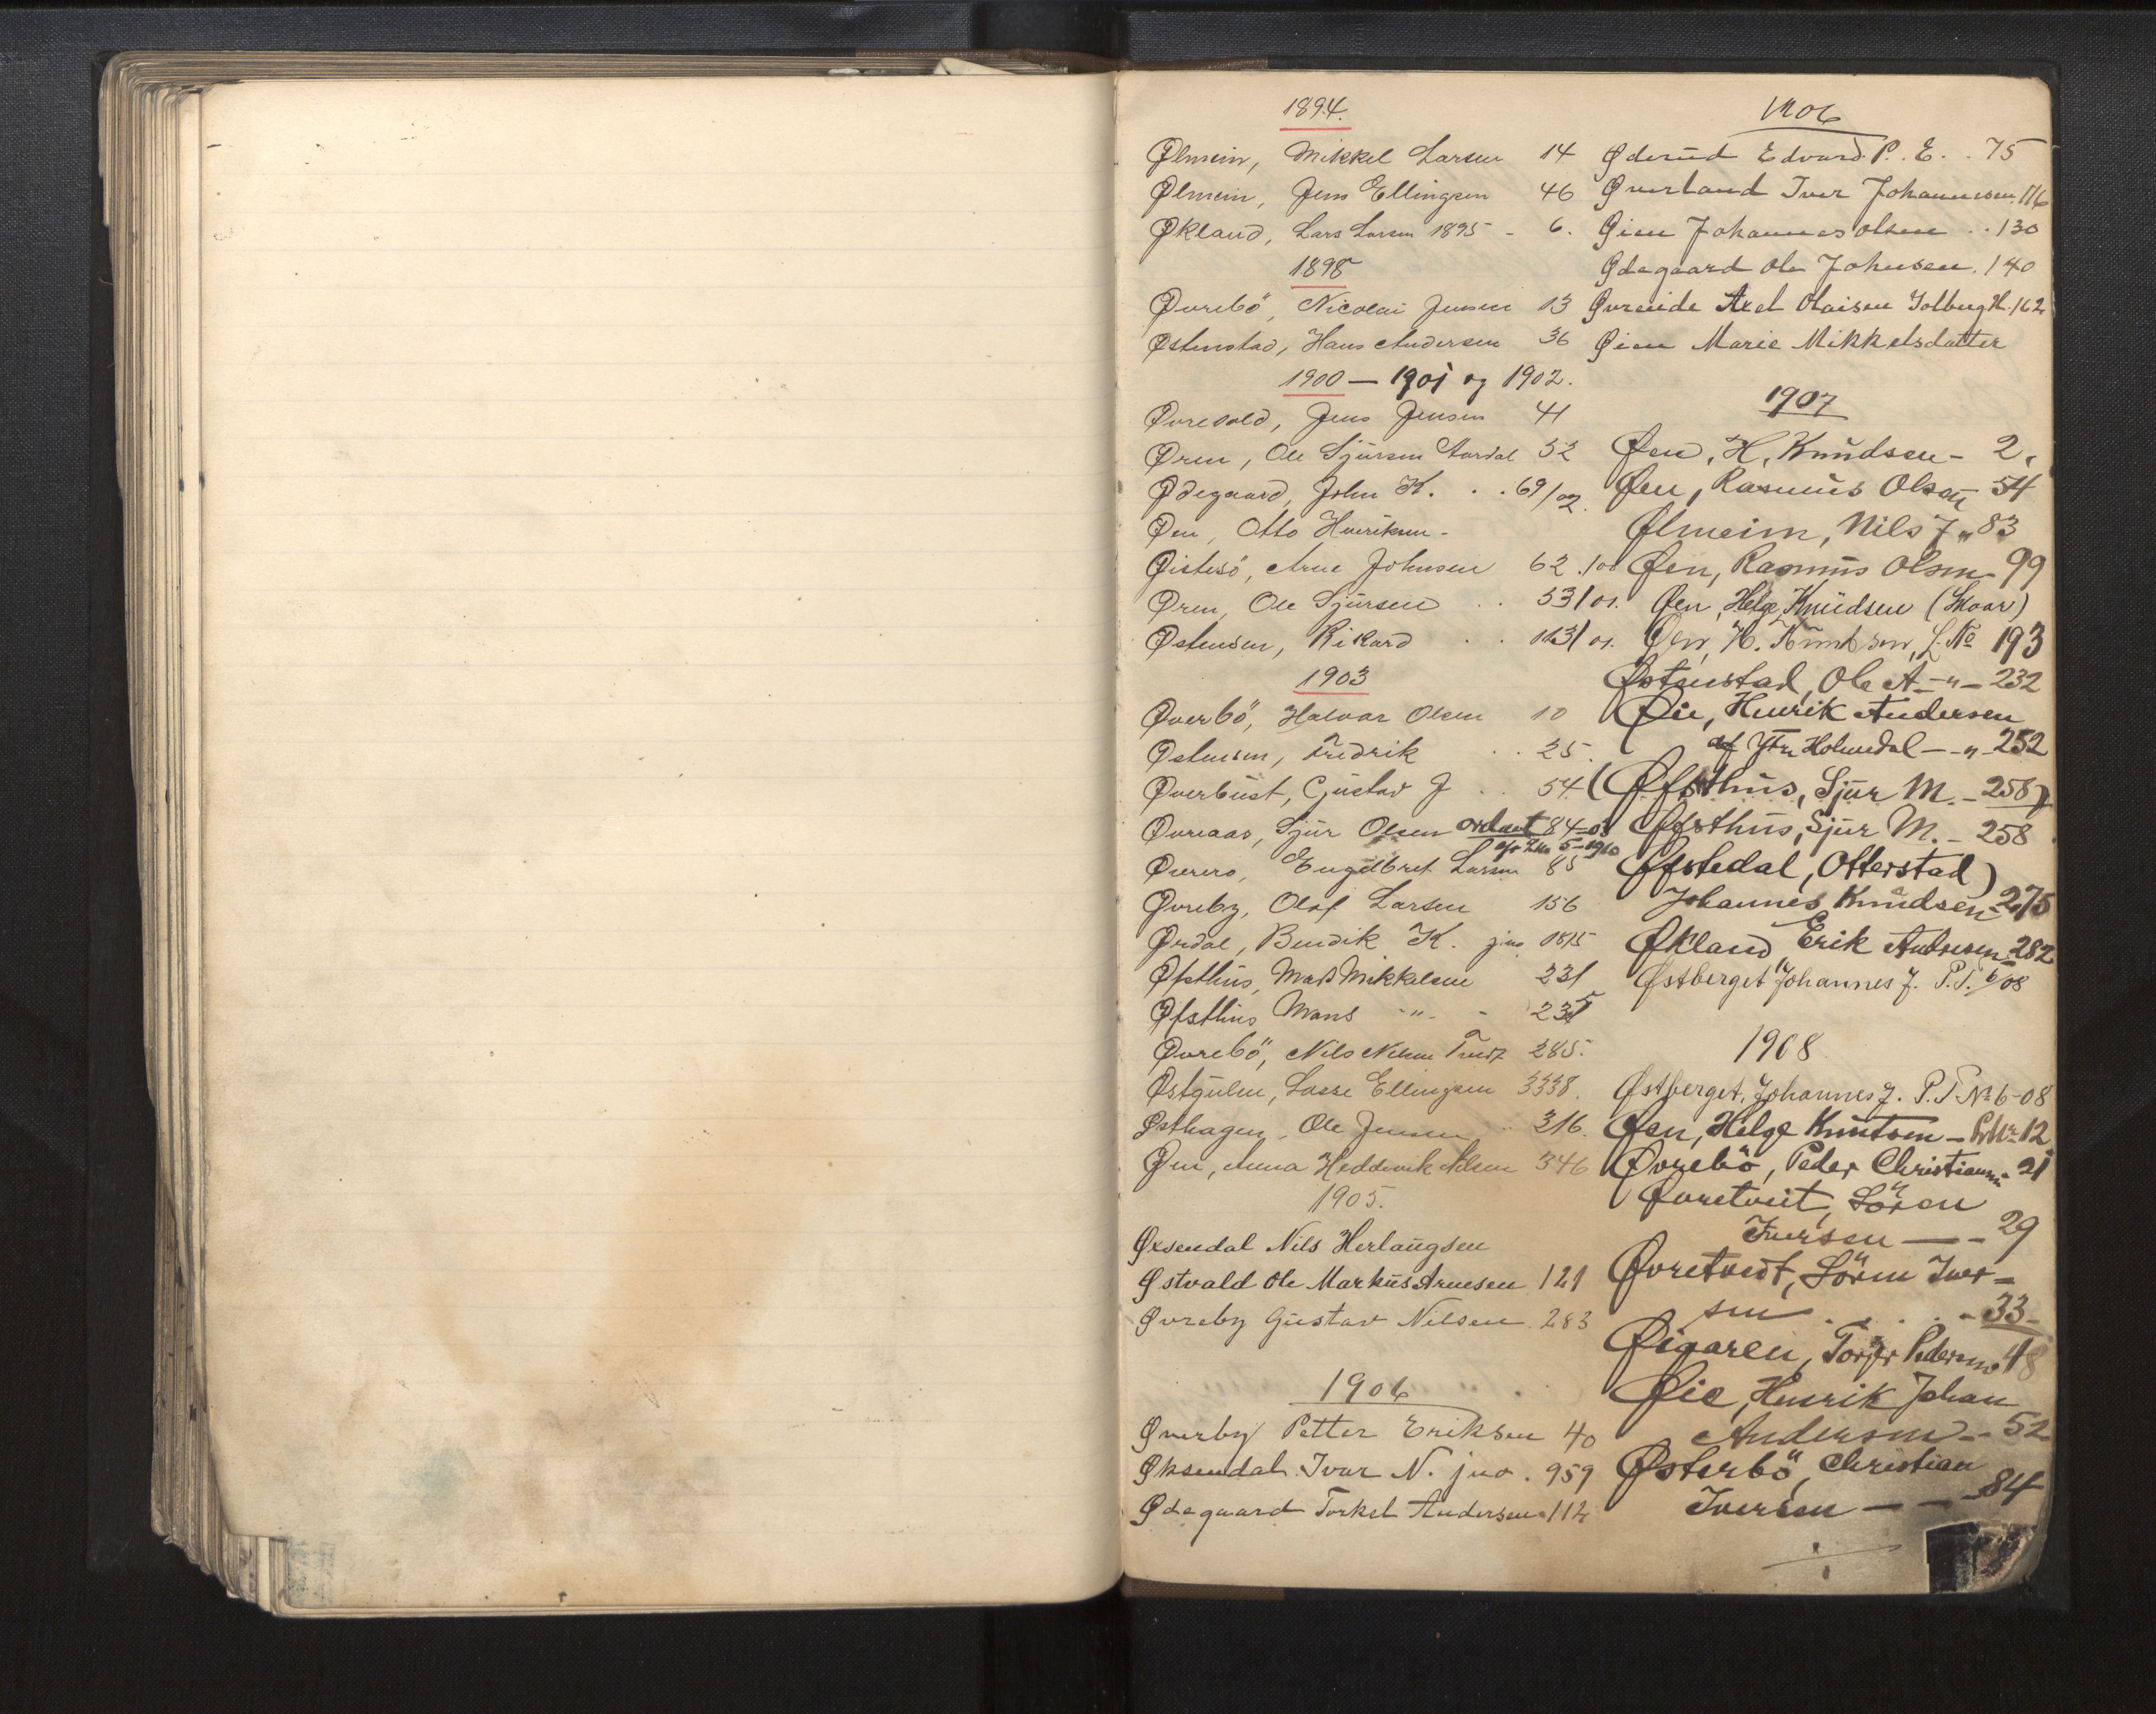 1894.
Ølmein, Mikkel Larsen 14
Ølmein, Jens Ellingsen 46
Økland, Lars Larsen 1895 - 6.
1898
Øvrebö, Nicolai Jensen 13
Østenstad, Hans Andersen 36
1900 — 1901 og 1902.
Øvrevold, Jens Jensen 41
Øren, Ole Sjursen Aardal 32
Ødegaard, John K. . . 69/02.
Øen, Otto Henriksen -
Øistesö, Arne Johnsen 62./00
Øren, Ole Sjursen . . 53/01.
Østensen, Rikard . . 123/01.
1903
Øverbö, Halvar Olsen 10
Østensen, Fredrik . . 25.
Øverbust, Gustav J . . 54.
Øvreaas, Sjur Olsen 84-03
85
Øvreby, Olaf Larsen 156
Ørdal, Bendik K. jno 1815
Øfsthus, Mads Mikkelsen 231
Øfsthus Mons -"- - 235
Øvrebö, Nils Nilsen 285.
Østgulen, Lasse Ellingsen 3338.
Østhagen, Ole Jensen . . 316.
Øen, Anna Heddevik Nilsen 346
1905.
Øxendal Nils Herlaugsen
Østvald Ole Markus Arnesen 121
Øvreby Gustav Nilsen 283
1906
Øverby Petter Eriksen 40
Øksendal Ivar N. jno. 959
Ødegaard Torkel Andersen 112
1906
Øderud Edvard P. E. . 75
Øverland Iver Johannesen 116
Øien Johannes Olsen . . 130
Ødegaard Ole Johnsen. 140
Øvreeide Axel Olaisen Solberg H. 162
Øien Marie Mikkelsdatter
1907
Øen, H. Knudsen - 2.
Øen, Rasmus Olsen 54
Ølmeim, Nils J „ 83
Øen, Rasmus Olsen 99
Øen, Helge Knudsen (Skaar)
Øen, H. Knudsen, L. No 193
Østenstad, Ole A -"- 232
Øie, Henrik Andersen
af Ytre Holmedal - „ - 252
(Øfsthus, Sjur M. - 258)
Øfsthus, Sjur M. - 258
Øfstedal, Otterstad)
Johannes Knudsen 275
Økland Erik Andersen 282
Østberget Johannes J. P.T. 6/08
1908
Østberget, Johannes J. P.T. No 6-08
Øen, Helge Knutsen - 12
Øvrebö, Peder Christiansen 21
Øvretveit, Sören
Iversen — - 29
Øvretvedt, Sören Iver-
sen . . . . - 33-
Øigaren, Torger Pedersen 48
Øie, Henrik Johan
Andersen - - 52
Østerbö, Christian
Iversen — — 84